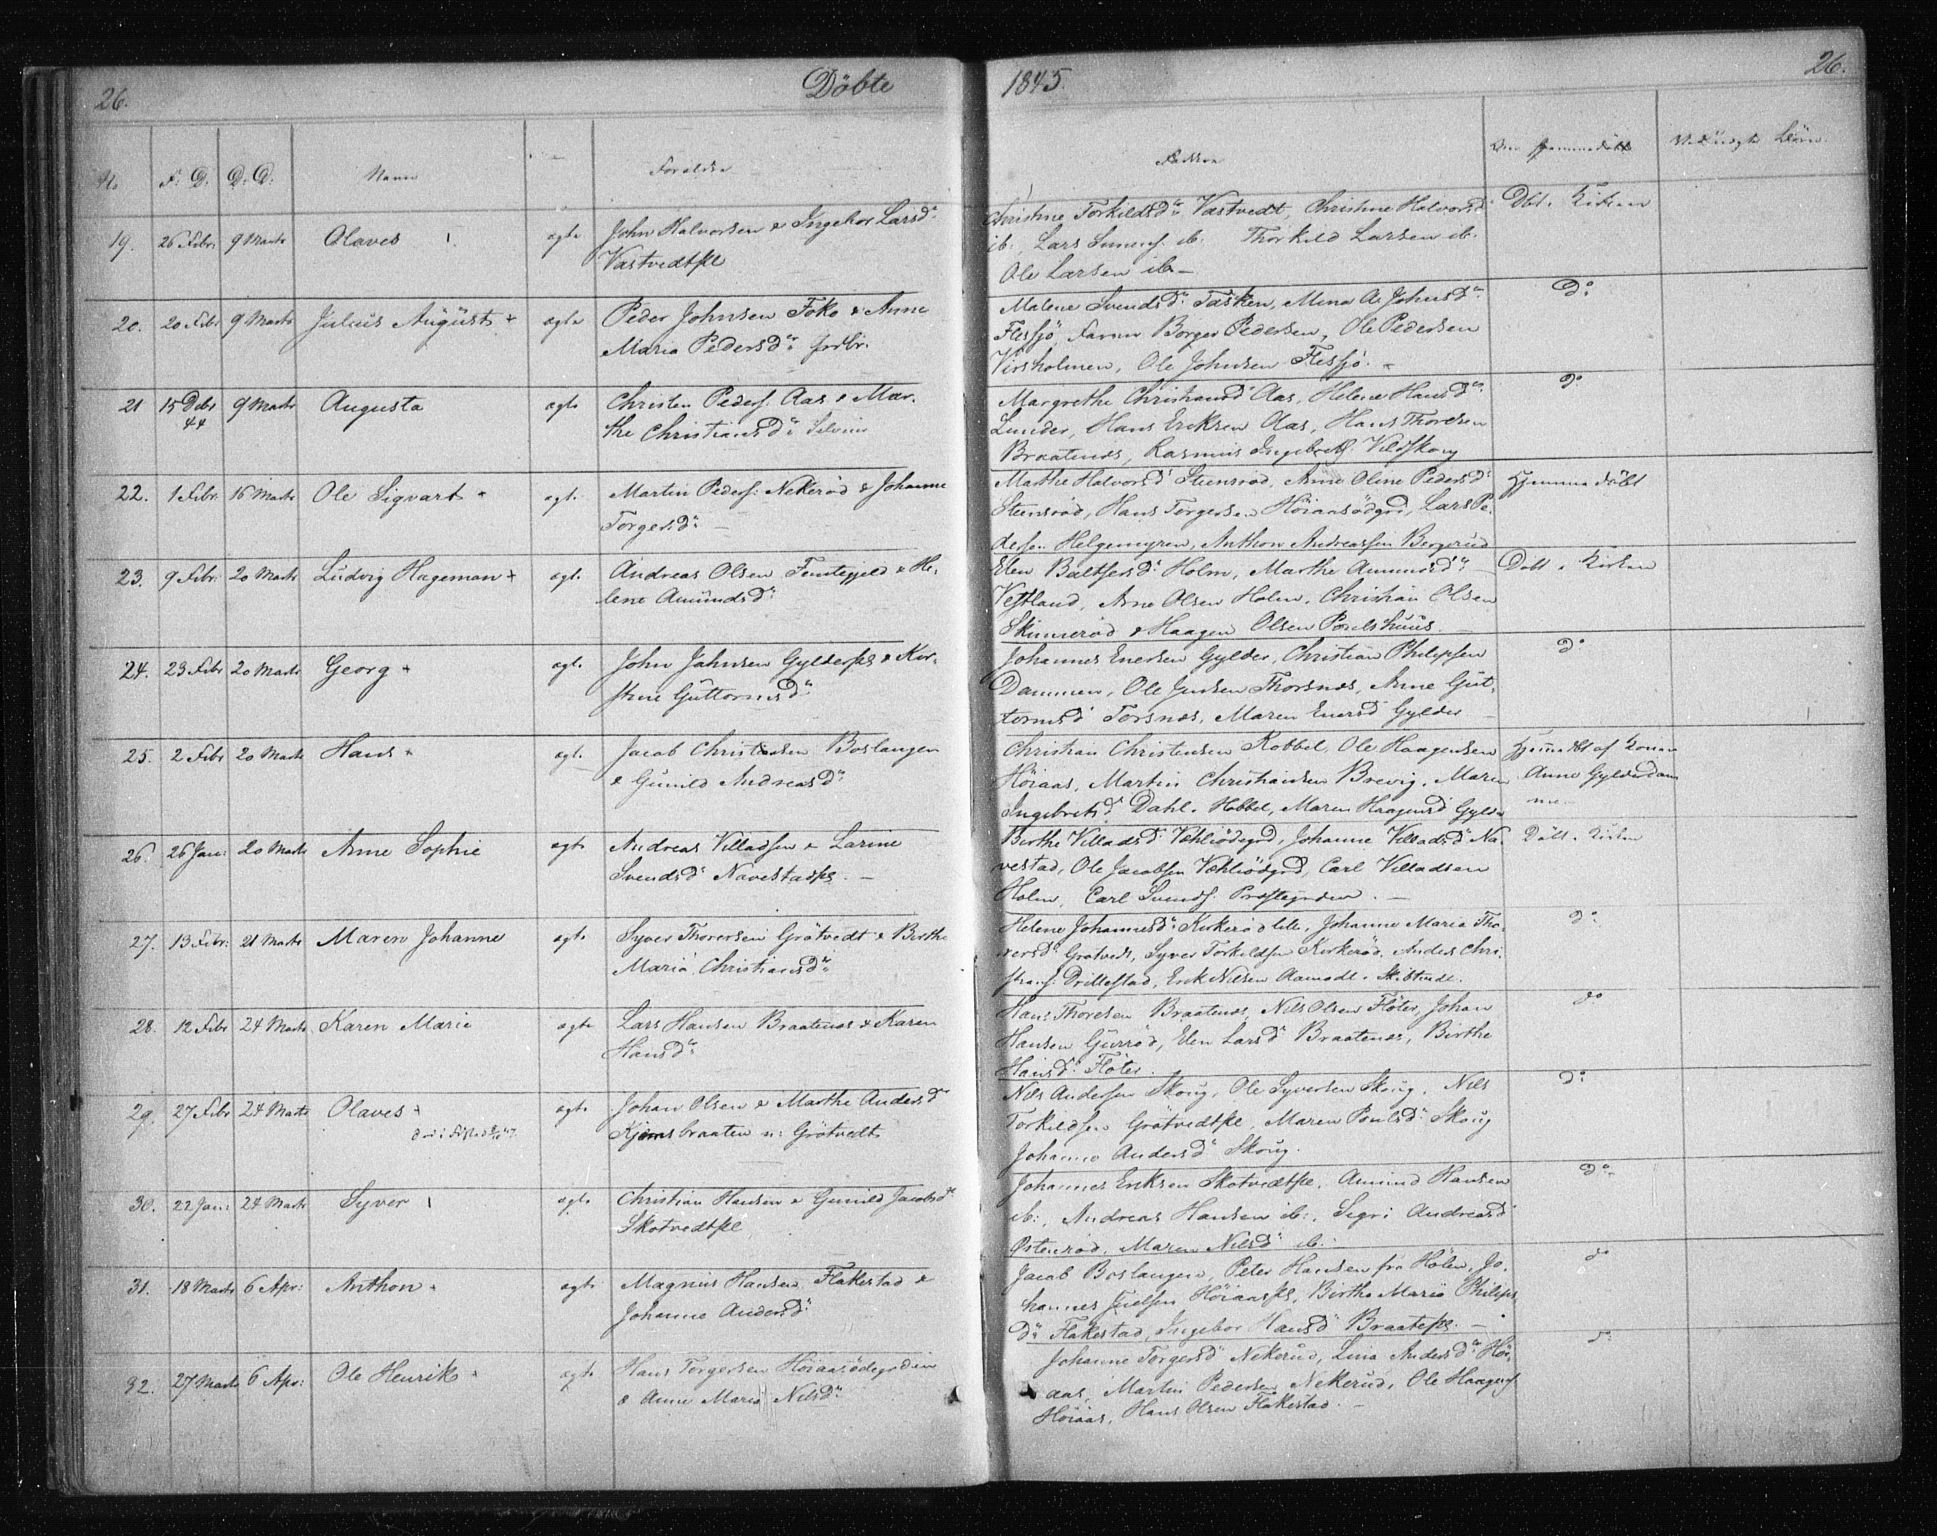 26. Döbte 1845. 26.
No F: D. D: D: Navn Forældre Faddere
19. 26 Febr 9 Marts Olaves ægte John Halvorsen & Ingebor Larsdr
Vastvedtpl
Christine Torkildsdr Vastvedt, Christine Halvorsd
ib: Lars ib. Thorkild Larsen ib.
Ole Larsen ib — Döbt i Kirken
20. 20 Febr 9 Marts Julius August + ægte Peder Johnsen Foko & Anne
Maria Pedersdr
Malene Svendsdr Tasken, Mina A. Johnsdr
Flessjö, Borger Pedersen, Ole Pedersen
Virsholmen, Ole Johnsen Flessjö. — Do
21 15 Debr 44 9 Marts Augusta ægte Christen Peders. Aas & Mar-
the Christiansdr
Margrethe Christiansd Aas, Helene Hansdr
Lunder, Hans Eriksen Aas, Hans Thoresen
Braatenes, Rasmus Ingebrets. Vildskoug do
22. 1 Febr 16 Marts Ole Sigvart + ægt. Martin Peders. Nekeröd & Johanne
Torgersdr —
Mathe Halvorsd Steensröd, Anne Oline Pedersd
Steensröd, Hans Torgersen Höiaasödegrd, Lars Pe-
dersen Helgemyren, Anthon Andreassen Bergerud Hjemmedöbt
23. 9 Febr. 20 Marts Ludvig Hageman + ægt. Andreas Olsen Fenstegjeld & He-
lene Amundsdr
Elen Baltsersd Holm, Marthe Amundsdr
Vestland, Arne Olsen Holm, Christian Olsen
Skinneröd & Haagen Olsen Poulshuus Döbt i Kirken
24. 23 Febr 20 Marts Georg + ægt. John Johnsen Gylderpl & Kir-
stine Guttormsdr
Johannes Enersen Gylder, Christian Philipsen
Dammen, Ole Jensen Thorsnes, Anne Gut-
tormsd Torsnes, Maren Enersd Gylder — do
25. 2 Febr 20 Marts Hans + ægt. Jacob Christensen Boslangen
& Gunild Andreasdr
Christian Christensen Robbel, Ole Haagensen
Höiaas, Martin Christiansen Brevig, Maren
Ingebretsd Dahl. Hobbel, Maren Haagensd Gylder Hjemdöbt af Konen
Anne Gylderdam
me.
26. 26 Jan: 20 Marts Anne Sophie ægte Andreas Villadsen & Larine
Svendsdr Navestadpl. —
Birthe Villadsd Vehliödegrd, Johanne Villadsd Na-
vestad, Ole Jacobsen Vehliödgrd, Carl Villadsen
Holm, Carl Svends. Prestegrden. — Döbt i Kirken
27. 13 Febr: 21 Marts Maren Johanne ægte Syver Thoresen Grötvedt & Birthe
Maria Christiansdr
Helene Johannesdr Kirkeröd lille, Johanne Maria Tho-
resd. Grötvedt, Syver Torkildsen Kirkeröd, Anders Chri-
stians. Drillestad, Erik Nilsen Aamodt. Skibtvedt. do
28. 12 Febr 24 Marts Karen Marie ægte Lars Hansen Braatenes & Karen
Hansdr
Hans Thoresen Braatenes, Nils Olsen Flöter, Johan
Hansen Gurröd, Elen Larsd Braatenes, Birthe
Hansdr Flöter. do
29. 27 Febr 24 Marts Olaves + ægte Johan Olsen & Marthe Andersdr
Kjernsbraaten u: Grötvedt
Nils Andersen Skoug, Ole Syversen Skoug, Nils
Torkildsen Grötvedtpl, Maren Poulsdr Skoug
Johanne Andersdr Skoug. do
30. 22 Jan: 24 Marts Syver ægte Christian Hansen & Gunild Jacobsdr
Skotvedtpl
Johannes Eriksen Skotvedtpl, Amund Hansen
ib:, Andreas Hansen ib:, Sigri Andreasd
Osteröd, Maren Nilsd ib: do
31. 18 Marts 6 Apr: Anthon + ægte Magnus Hansen Flakestad &
Johanne Andersdr
Jacob Boslangen, Peter Hansen fra Hölen, Jo-
hannes Juelsen Höiaaspl, Birthe Maria Philips-
dr Flakestad, Ingebor Hansd Braatepl. — do
32. 27 Marts 6 Apr: Ole Henrik + ægte Hans Torgersen Höiaasödegrden
& Anne Maria Nilsdr
Johanne Torgersd Nekerud, Lina Andersdr Höi-
aas, Martin Pedersen Nekerud, Ole Haagens.
Höiaas, Hans Olsen Flakestad. — do